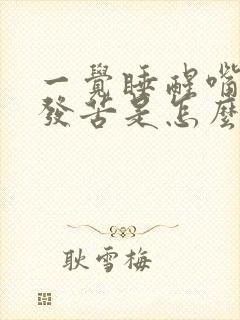 一覺睡醒嘴
發苦是怎麼
耿雪梅